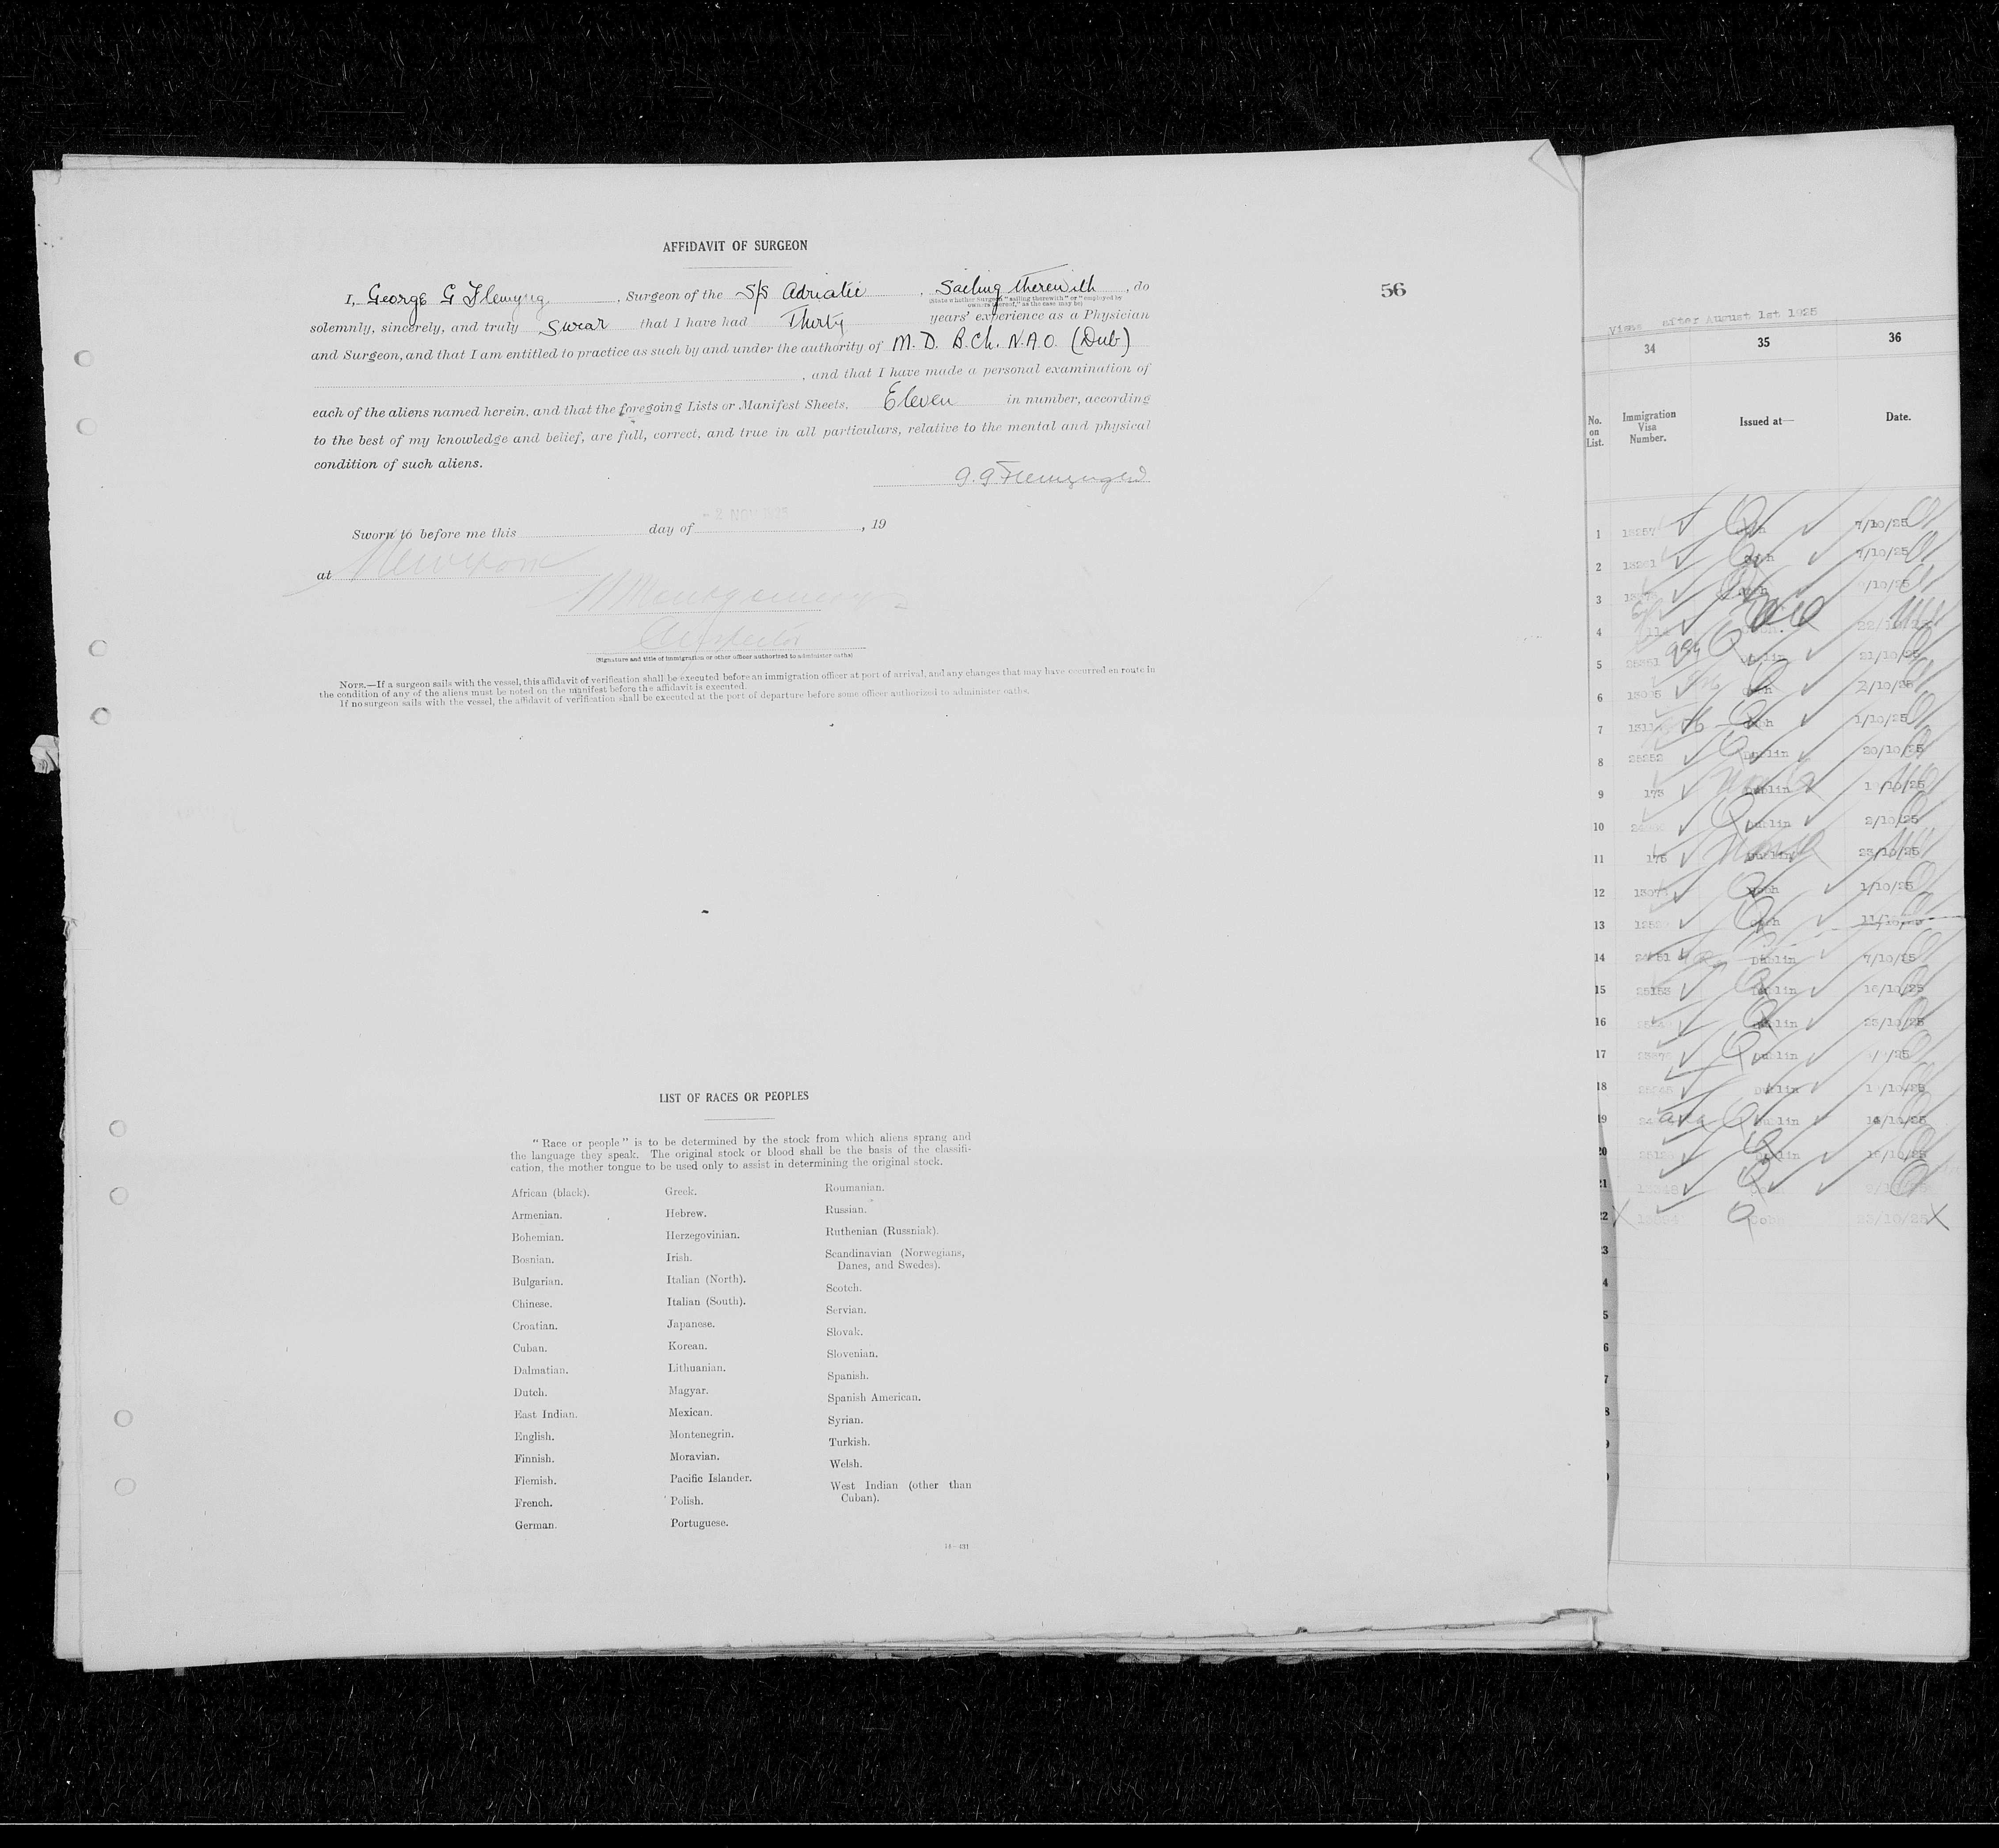 AFFIDAVIT OF SURGEON
I, George G Flemyng, Surgeon of the S/S Adriatic, Sailing therewith, do
(State whether Surgeon "sailing therewith" or "employed by
owners thereof," as the case may be)
solemnly, sincerely, and truly swear that I have had Thirty years' experience as a Physician
and Surgeon, and that I am entitled to practice as such by and under the authority of M.D. B.Ch. N.A.O. (Dub)
, and that I have made a personal examination of
each of the aliens named herein, and that the foregoing Lists or Manifest Sheets, Eleven in number, according
to the best of my knowledge and belief, are full, correct, and true in all particulars, relative to the mental and physical
condition of such aliens.
Sworn to before me this day of - 2 NOV 1925, 19
at New York
(Signature and title of immigration or other officer authorized to administer oaths)
NOTE.—If a surgeon sails with the vessel, this affidavit of verification shall be executed before an immigration officer at port of arrival, and any changes that may have occurred en route in
the condition of any of the aliens must be noted on the manifest before the affidavit is executed.
If no surgeon sails with the vessel, the affidavit of verification shall be executed at the port of departure before some officer authorized to administer oaths.
LIST OF RACES OR PEOPLES
"Race or people" is to be determined by the stock from which aliens sprang and
the language they speak. The original stock or blood shall be the basis of the classifi-
cation, the mother tongue to be used only to assist in determining the original stock.
African (black).
Armenian.
Bohemian.
Bosnian.
Bulgarian.
Chinese.
Croatian.
Cuban.
Dalmatian.
Dutch.
East Indian.
English.
Finnish.
Flemish.
French.
German.
Greek.
Hebrew.
Herzegovinian.
Irish.
Italian (North).
Italian (South).
Japanese.
Korean.
Lithuanian.
Magyar.
Mexican.
Montenegrin.
Moravian.
Pacific Islander.
Polish.
Portuguese.
Roumanian.
Russian.
Ruthenian (Russniak).
Scandinavian (Norwegians,
Danes, and Swedes).
Scotch.
Servian.
Slovak.
Slovenian.
Spanish.
Spanish American.
Syrian.
Turkish.
Welsh.
West Indian (other than
Cuban).
56
Visas after August 1st 1925
34 35 36
No. on List. Immigration Visa Number. Issued at— Date.
1 Cobh 7/10/25
2 Cobh 7/10/25
3
4
5 Dublin 21/10/25
6 Cobh 2/10/25
7 Cobh 1/10/25
8 25252 Dublin 20/10/25
9 173 Dublin
10 Dublin 2/10/25
11 175 Dublin 23/10/25
12 Cobh 1/10/25
13 Cobh
14 Dublin 7/10/25
15 25153 Dublin 16/10/25
16 Dublin 23/10/25
17 Dublin
18 Dublin
19 Dublin
20 Dublin 16/10/25
21
22 Cobh 23/10/25